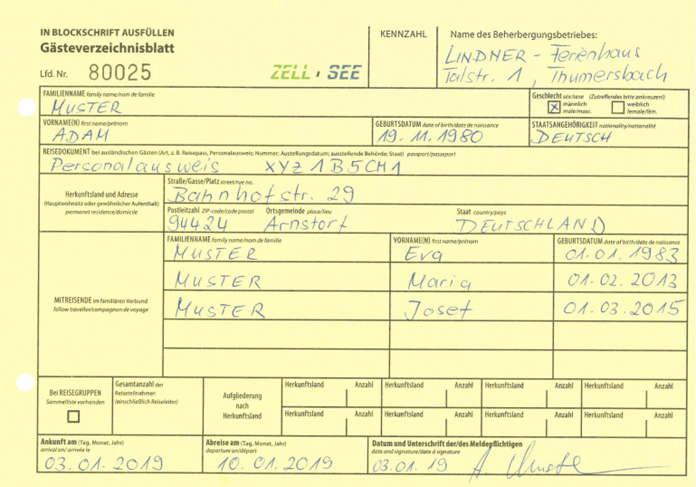 IN BLOCKSCHRIFT AUSFÜLLEN
Gästeverzeichnisblatt
Lfd. Nr. 80025
ZELL · SEE
KENNZAHL
Name des Beherbergungsbetriebes:
LINDNER - Ferienhaus
Talstr. 1, Thumersbach
FAMILIENNAME family name/nom de famille
MUSTER
Geschlecht sex/sexe (Zutreffendes bitte ankreuzen!)
männlich male/masc.
weiblich female/fém.
VORNAME(N) first name/prénom
ADAM
GEBURTSDATUM date of birth/date de naissance
19. 11. 1980
STAATSANGEHÖRIGKEIT nationality/nationalité
DEUTSCH
REISEDOKUMENT bei ausländischen Gästen (Art, z. B. Reisepass, Personalausweis; Nummer; Ausstellungsdatum; ausstellende Behörde; Staat) passport/passeport
Personalausweis XYZ 1 B 5 CM 1
Herkunftsland und Adresse
(Hauptwohnsitz oder gewöhnlicher Aufenthalt)
permanet residence/domicile
Straße/Gasse/Platz street/rye no.
Bahnhofstr. 29
Postleitzahl ZIP-code/code postal Ortsgemeinde place/lieu Staat country/pays
94424 Arnstorf DEUTSCHLAND
MITREISENDE im familiären Verbund
fellow traveller/compagnon de voyage
FAMILIENNAME family name/nom de famille VORNAME(N) first name/prénom GEBURTSDATUM date of birth/date de naissance
MUSTER Eva 01. 01. 1983
MUSTER Maria 01. 02. 2013
MUSTER Josef 01. 03. 2015
Bei REISEGRUPPEN
Sammelliste vorhanden
Gesamtanzahl der
Reiseteilnehmer:
(einschließlich Reiseleiter)
Aufgliederung
nach
Herkunftsland
Herkunftsland Anzahl Herkunftsland Anzahl Herkunftsland Anzahl Herkunftsland Anzahl
Herkunftsland Anzahl Herkunftsland Anzahl Herkunftsland Anzahl Herkunftsland Anzahl
Ankunft am (Tag, Monat, Jahr)
arrival on/ arrivée le
03. 01. 2019
Abreise am (Tag, Monat, Jahr)
departure on/départ
10. 01. 2019
Datum und Unterschrift der/des Meldepflichtigen
date and signature/date à signature
03.01.19 A. Muster